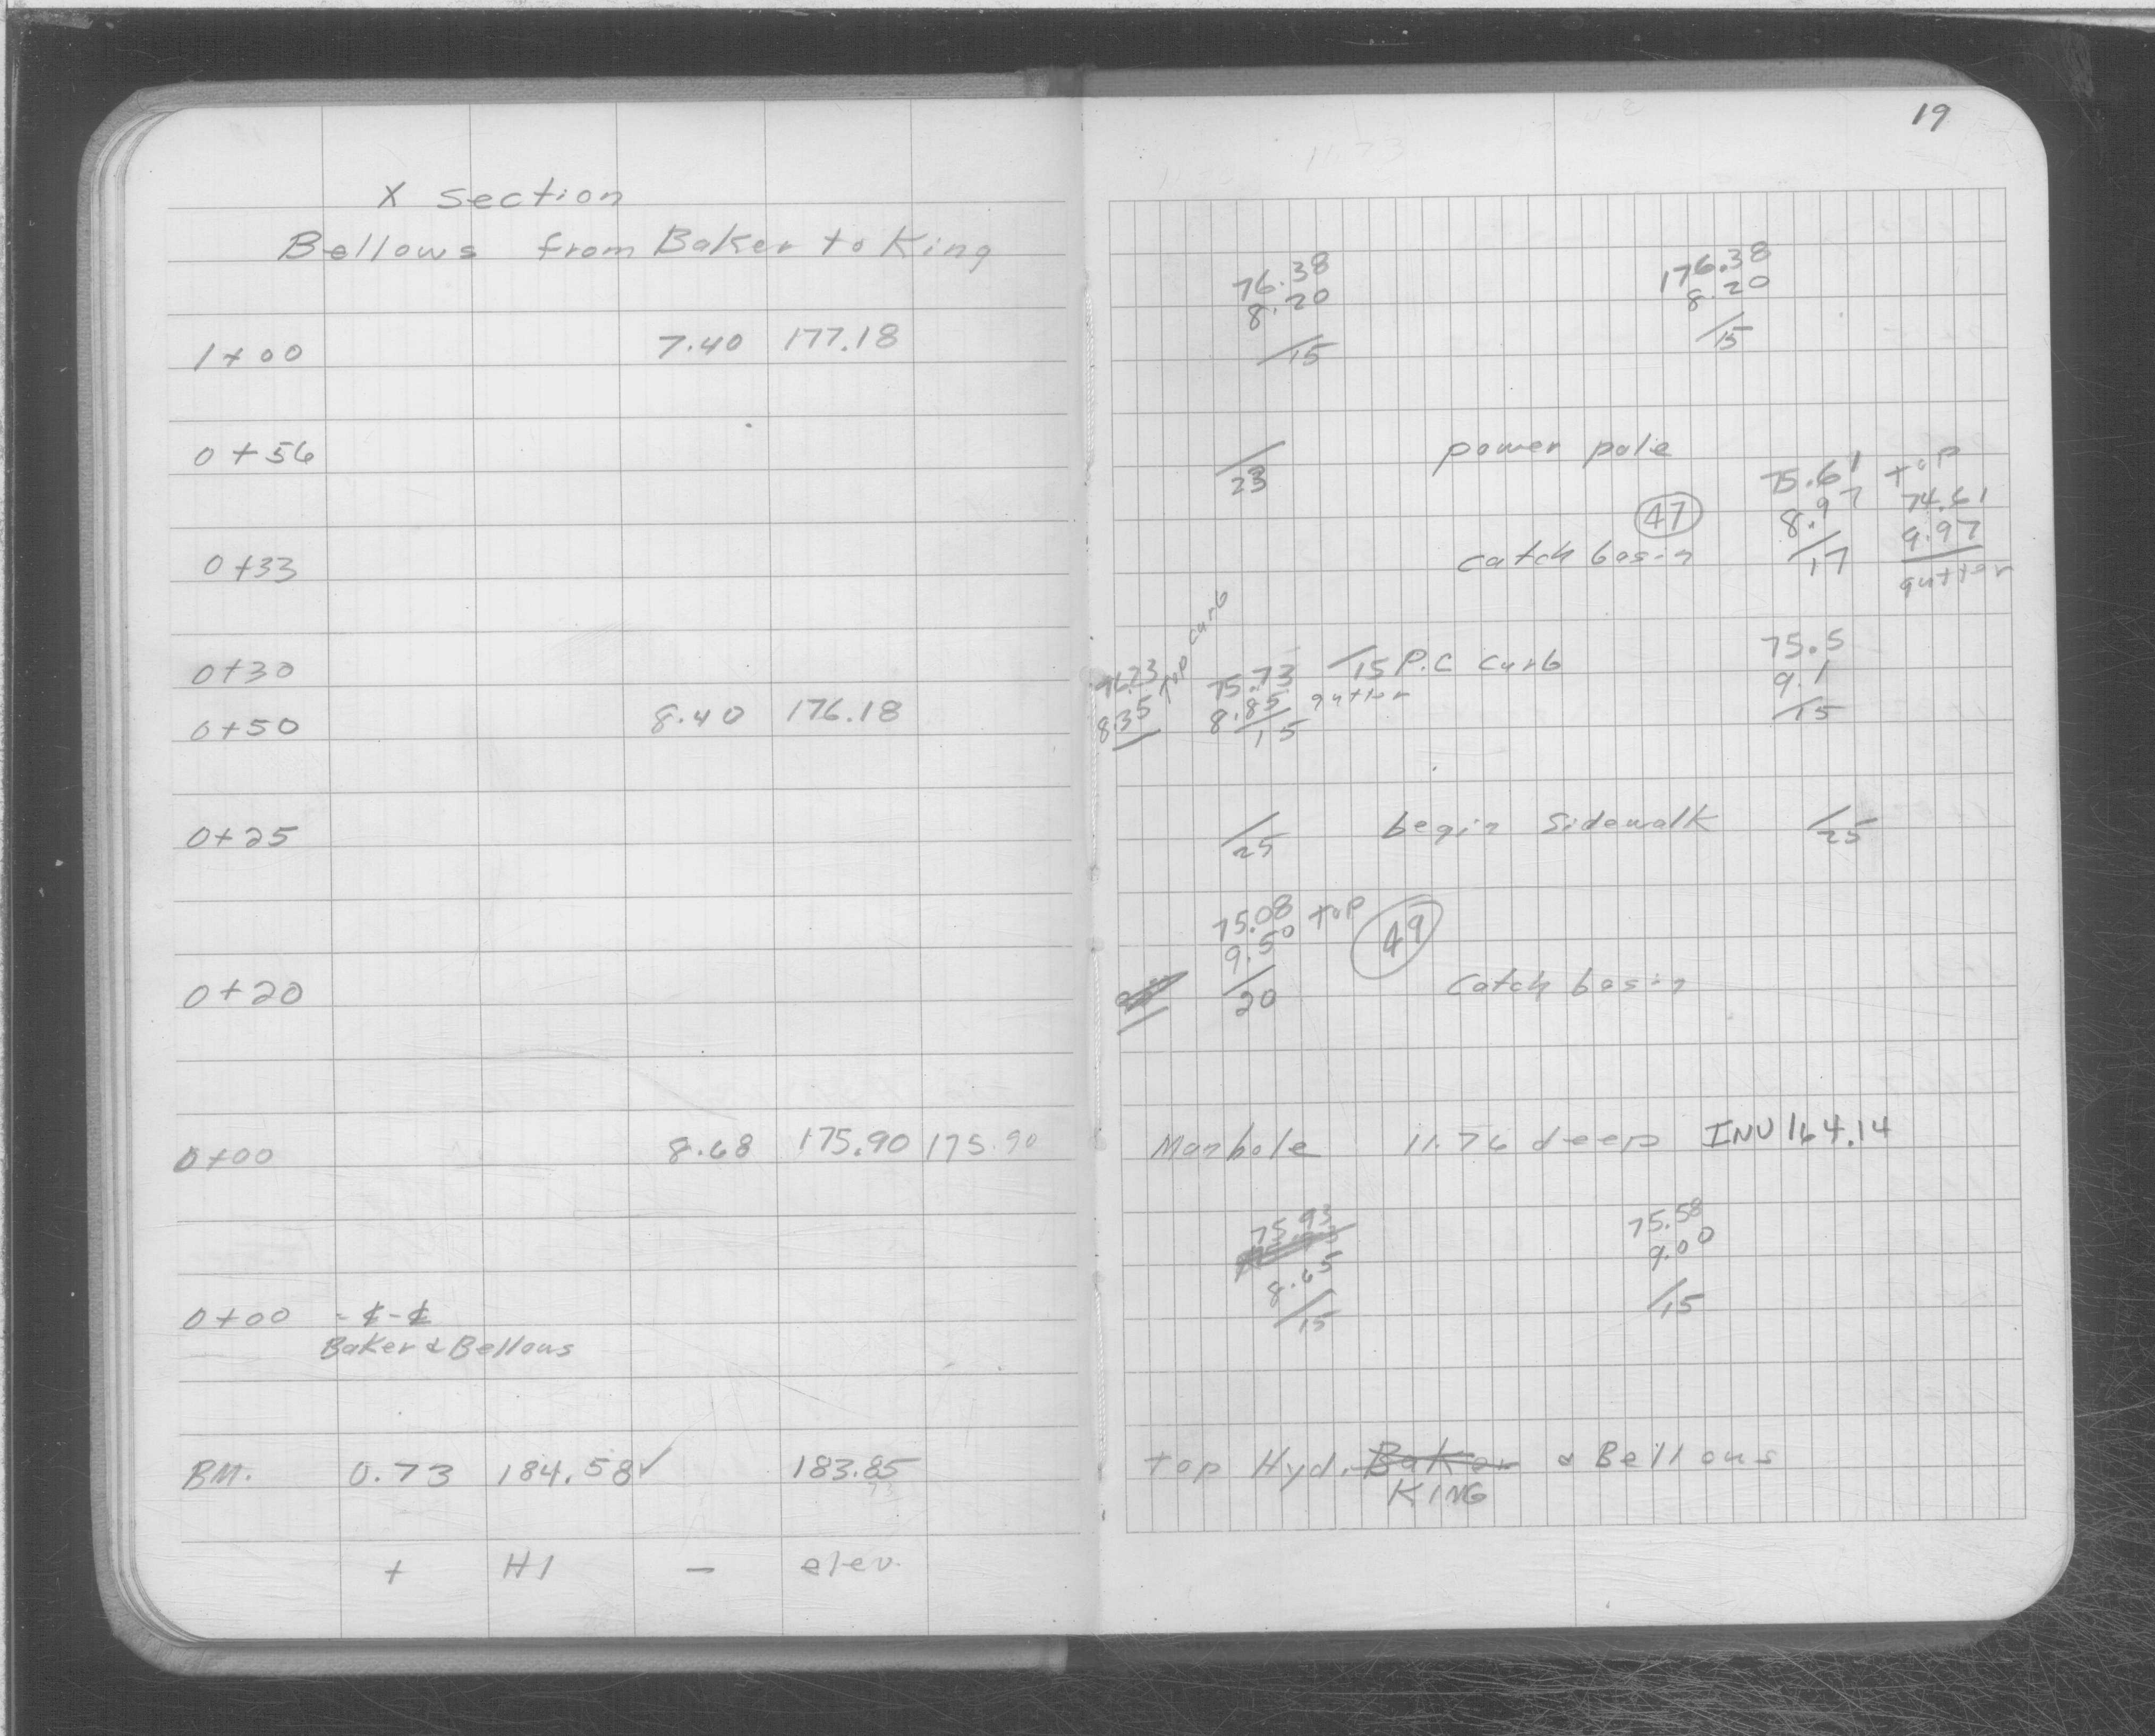 X section
Bellows from Baker to King
1+00 7.40 177.18
0+56
0+33
0+30
0+50 8.40 176.18
0+25
0+20
0+00 8.68 175.90 175.90
0+00 = ℄-℄
Baker & Bellows
BM. 0.73 184.58✓ 183.85
+ HI - elev.
19
76.38 176.38
8.20 8.20
/15 /15
power pole
/23
75.61 top
47 8.97 74.61
catch basin /17 9.97
gutter
top curb
76.23 75.73 /15 P.C curb 75.5
8.35 8.85 gutter 9.1
/15 /15
/25 begin Sidewalk /25
75.08 top 49
9.50
/20 Catch basin
Manhole 11.76 deep INV 164.14
75.93 75.58
8.65 9.00
/15 /15
top Hyd. Baker & Bellows
KING